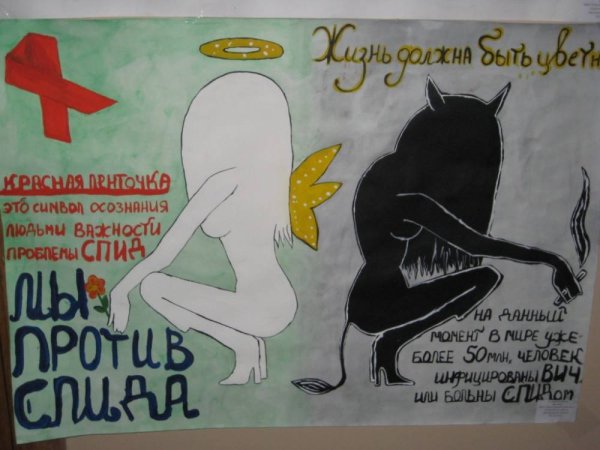 Жизнь должна быть цветн
КРАСНАЯ ЛЕНТОЧКА
ЭТО СИМВОЛ ОСОЗНАНИЯ
ЛЮДЬМИ ВАЖНОСТИ
ПРОБЛЕМЫ СПИД
МЫ
ПРОТИВ
СПИДА
НА ДАННЫЙ
МОМЕНТ В МИРЕ УЖЕ
БОЛЕЕ 50 МЛН, ЧЕЛОВЕК
ИНФИЦИРОВАНЫ ВИЧ
ИЛИ БОЛЬНЫ СПИДом